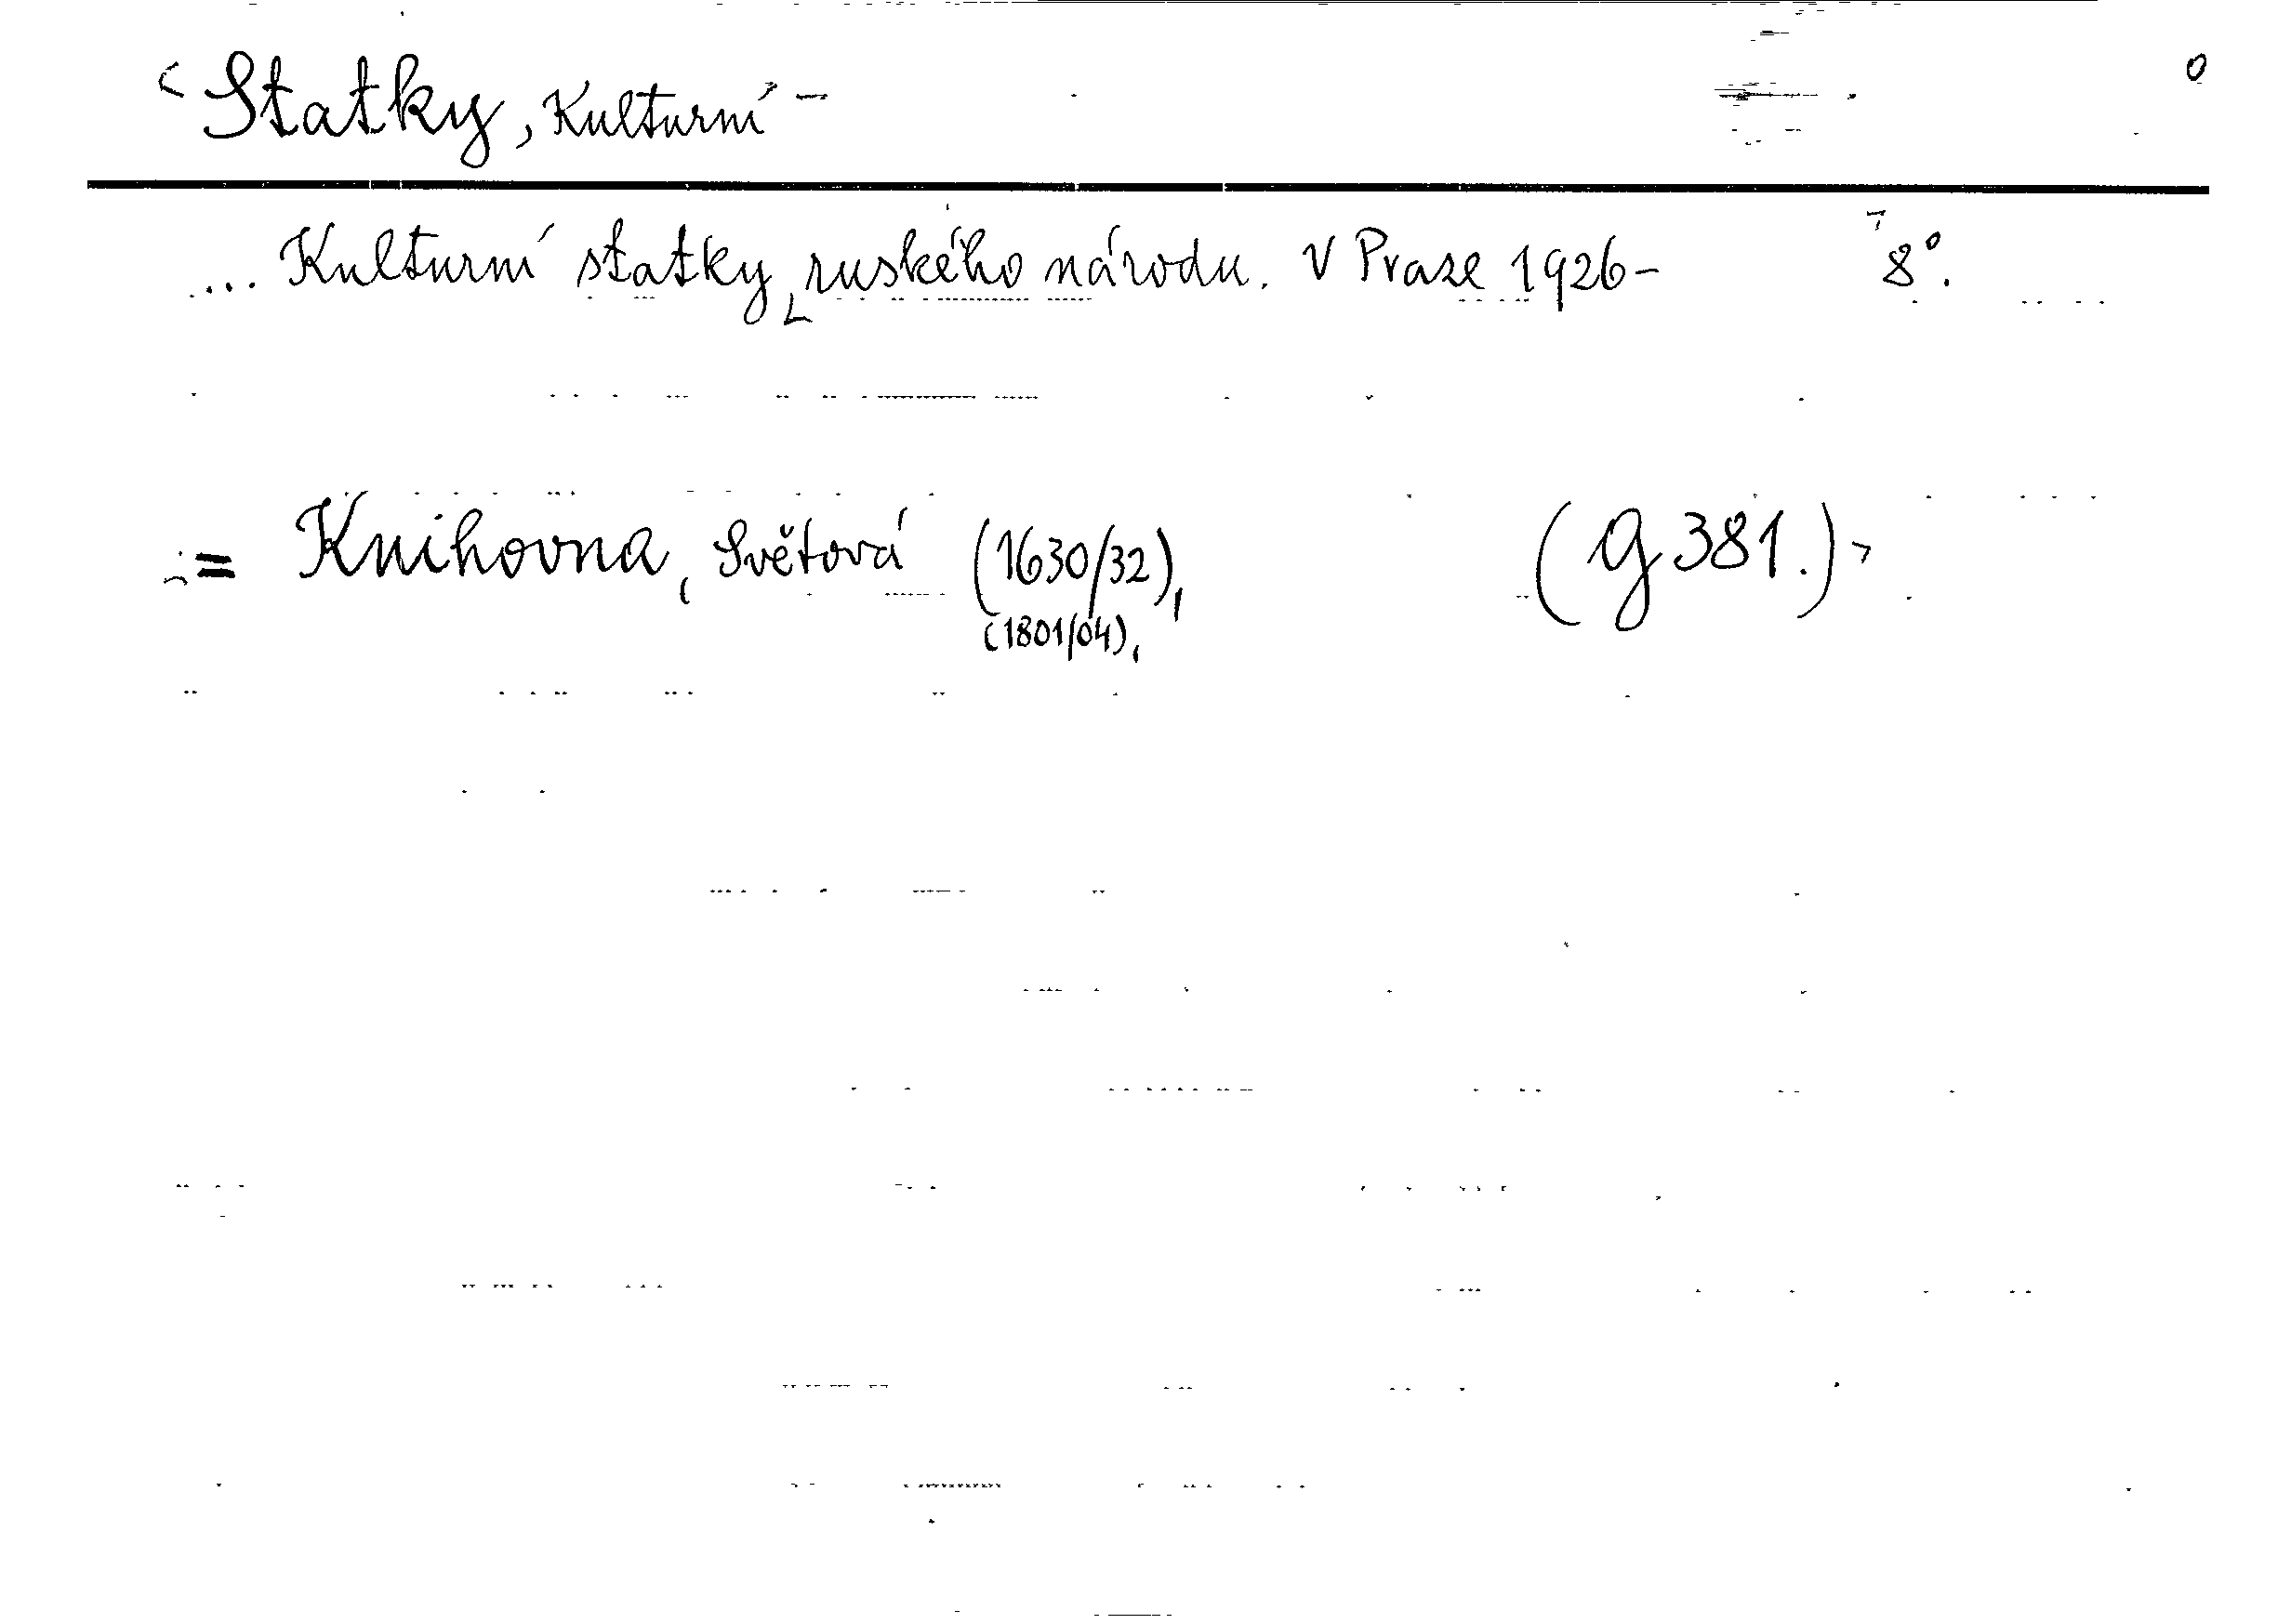 Statky, Kulturní –
... Kulturní statky ruského národu. V Praze 1926– 8°.
= Knihovna, Světová (1630/32), (g 381.)
(1801/04),